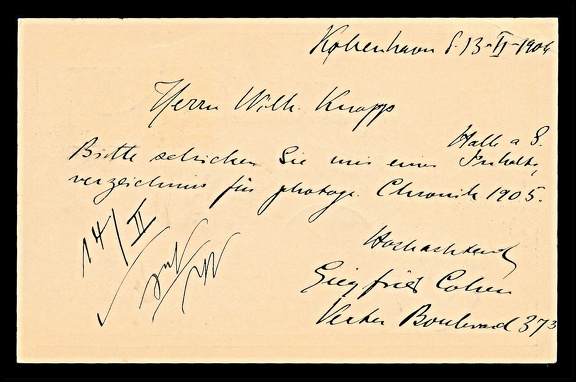 Kobenhavn d. 13-II-1906
Herrn Wilh. Knapp
Halle a S.
Bitte schicken Sie mir einen Inhalts,
verzeichnis für photogr. Chronik 1905.
Hochachtend
Siegfried Cohen
Vester Boulevard 37 3
14/II